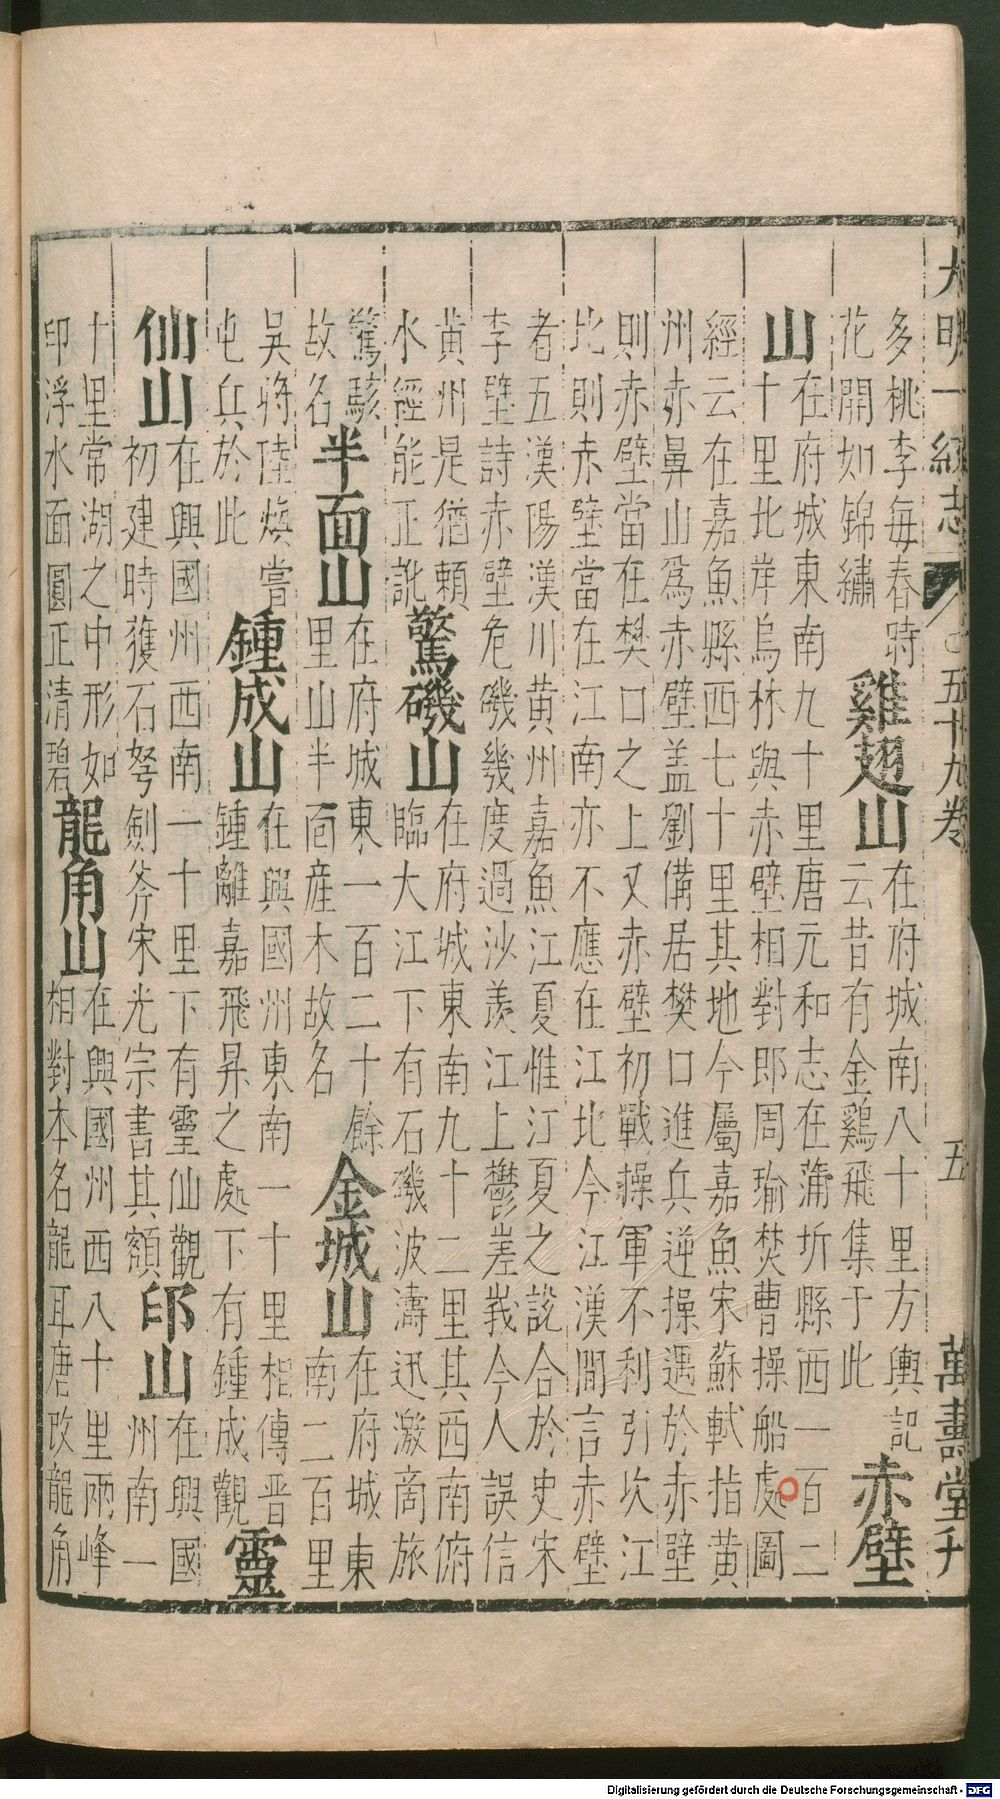 大明一統志 五十九卷 五 萬壽堂刊
多桃李每春時
花開如錦繡
雞翅山
在府城南八十里方輿記
云昔有金鷄飛集于此
赤壁
山
在府城東南九十里唐元和志在蒲圻縣西一百二
十里北岸烏林與赤壁相對即周瑜焚曹操船處圖
經云在嘉魚縣西七十里其地今屬嘉魚宋蘇軾指黃
州赤鼻山爲赤壁盖劉備居樊口進兵逆操遇於赤壁
則赤壁當在樊口之上又赤壁初戰操軍不利引次江
北則赤壁當在江南亦不應在江北今江漢間言赤壁
者五漢陽漢川黃州嘉魚江夏惟江夏之説合於史宋
李壁詩赤壁危磯幾度過沙羡江上鬱嵳峩今人誤信
黃州是猶頼
水經能正訛
驚磯山
在府城東南九十二里其西南俯
臨大江下有石磯波濤迅激商旅
驚駭
故名
半面山
在府城東一百二十餘
里山半靣産木故名
金城山
在府城東
南二百里
吳將陸煥嘗
屯兵於此
鍾成山
在興國州東南一十里相傳晋
鍾離嘉飛昇之處下有鍾成觀
靈
仙山
在興國州西南一十里下有靈仙觀
初建時獲石弩劍斧宋光宗書其額
印山
在興國
州南一
十里常湖之中形如
印浮水面圓正清碧
龍角山
在興國州西八十里兩峰
相對本名龍耳唐改龍角
Digitalisierung gefördert durch die Deutsche Forschungsgemeinschaft - DFG